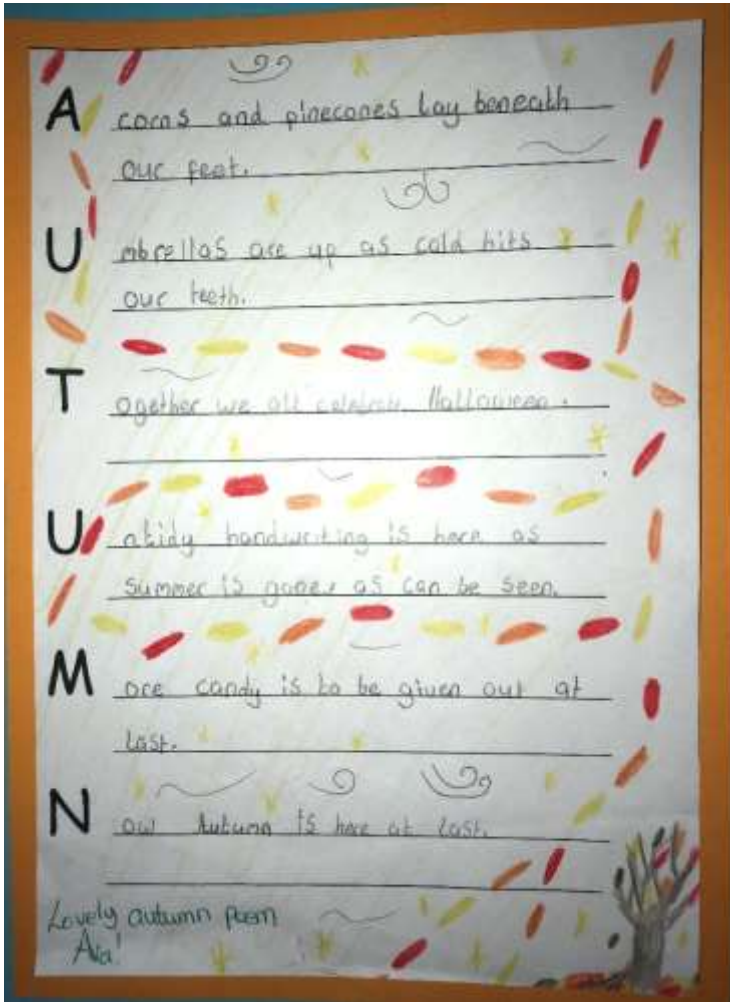 Acorns and pinecones lay beneath
our feet.
Umbrellas are up as cold hits
our teeth.
Together we all celebrate Halloween.
Untidy handwriting is here as
summer is gone, as can be seen.
More candy is to be given out at
last.
Now Autumn is here at last.
Lovely autumn poem